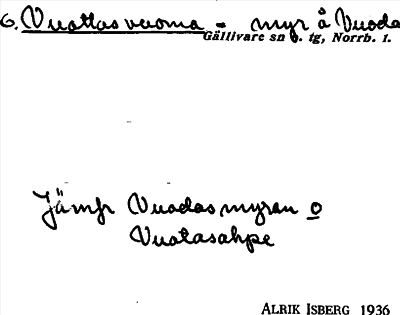 6. Vuottasvuoma = myr å Vuoda
Gällivare sn o. tg, Norrb. l.
Jämfr Vuodasmyran o
Vuotasahpe
ALRIK ISBERG 1936